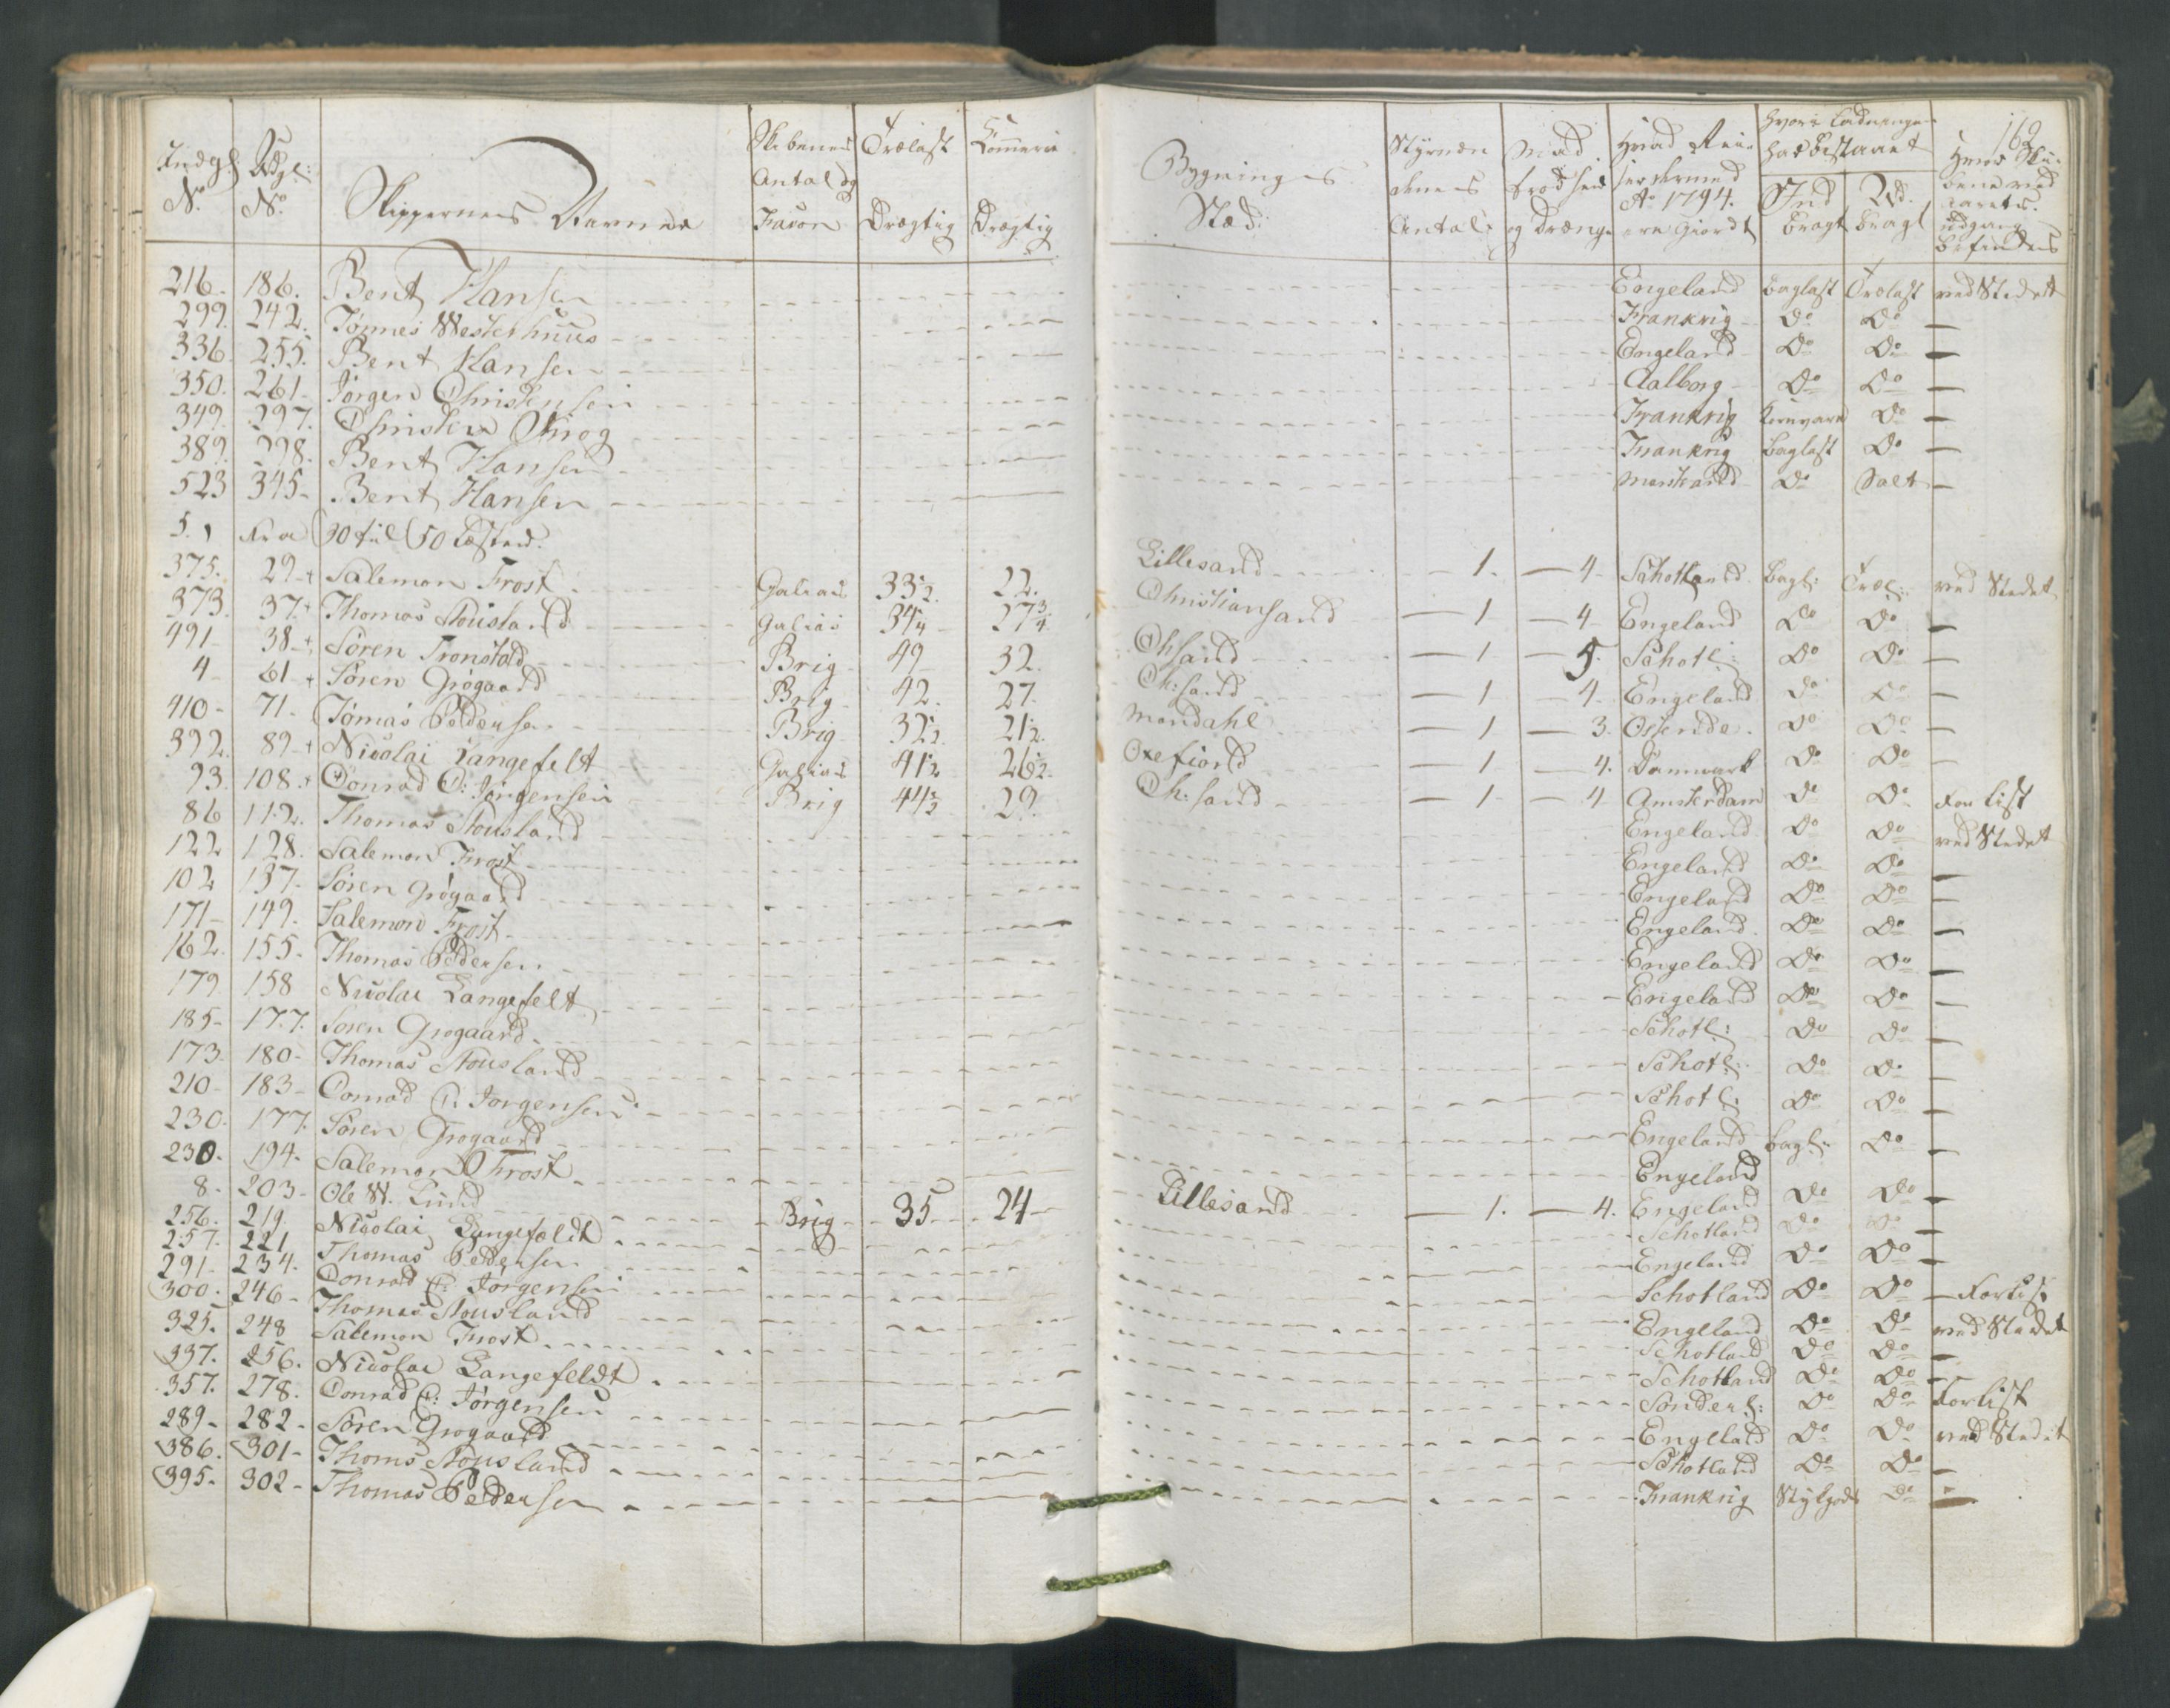 162
Indg: No. | Udgl: No. | Skippernes Navne | Skibenes Antal og Facon | Trælast Drægtig | Commerce Drægtig | Bygnings Stæd: | Styrmændenes Antal | Madtrosser og Drenge | Hvad Reiser dermed Ao 1794. ere Giordt | Hvori Ladningen har bestaaet Ind Bragt | Ud Bragt | Hvor Skibene ved aarets udgang befindes
216 - 186. Bent Hansen Engeland Baglast Trælast ved Stedet
299. 242. Tønnes Westerhuus Frankrig Do Do —
336. 255. Bent Hansen Engeland Do Do —
350. 261 - Jørgen Christensen Aalborg Do Do —
349. 297. Christen Krog Frankrig Kornvare Do —
389. 298. Bent Hansen Frankrig Baglast Do —
523 345 - Bent Hansen Do Salt —
5. Fra 30 til 50 Læster.
375. 29 + Salemon Frost Galias 33½. 22. Lillesand — 1. — 4 Schotland Bagl: Træl: ved Stedet
373. 37. + Thomas Stousland Galias 34¼ 27¾. Christiansand — 1 — 4 Engeland Do Do —
491 38 + Søren Tronstad Brig 49 32. Chsand — 1 — 5. Schotl: Do Do —
4 - 61 + Søren Grøgaard Brig 42. 27. Ch:sand — 1 — 4. Engeland Do Do —
410 - 71 - Tomas Pedersen Brig 32½. 21½. Mandahl — 1 — 3. Ostende. Do Do —
392. 89 + Nicolai Langefelt Galias 41½ 26½. Oxefiord — 1 — 4. Danmark Do Do —
93. 108. + Conrad C: Jørgensen Brig 44½ 29. Ch:sand — 1 — 4 Amsterdam Do Do Forlist
86 112. Thomas Stousland Engeland Do Do ved Stedet
122 128. Salemon Frost Engeland Do Do —
102 137. Søren Grøgaard Engeland Do Do —
171 - 149. Salemon Frost Engeland. Do Do —
162. 155. Thomas Pedersen Engeland Do Do —
179 158 Nicolai Langefelt Engeland Do Do —
185 - 177. Soren Grogaard Schotl: Do Do —
173. 180 - Thomas Stousland Schotl: Do Do —
210 - 183 - Conrad C: Jørgensen Schotl: Do Do —
230. 177. Søren Grogaard Engeland Bagl: Do —
230. 194. Salemon Frost Engeland
8. 203 - Ole W. Lund Brig 35 24 Lillesand — 1. — 4. Engeland Do Do —
256. 219. Nicolai Langefeldt Schotland Do Do —
257. 221 Thomas Pedersen Engeland Do Do —
291 - 234. Conrad C: Jørgensen Schotland Do Do — Forlist
300. 246 - Thomas Stousland Engeland Do Do ved Stedet
325. 248 Salemon Frost Schotland Do Do —
337. 256. Nicolai Langefeldt Schotland Do Do —
357. 278. Conrad C: Jørgensen Sønderl: Do Do Forlist
289 - 282 - Søren Grogaard Engeland Do Do ved Stedet
386. 301 - Thoms Stousland Schotland Do Do —
395. 302 - Thomas Pedersen Frankrig Stykgods Do —